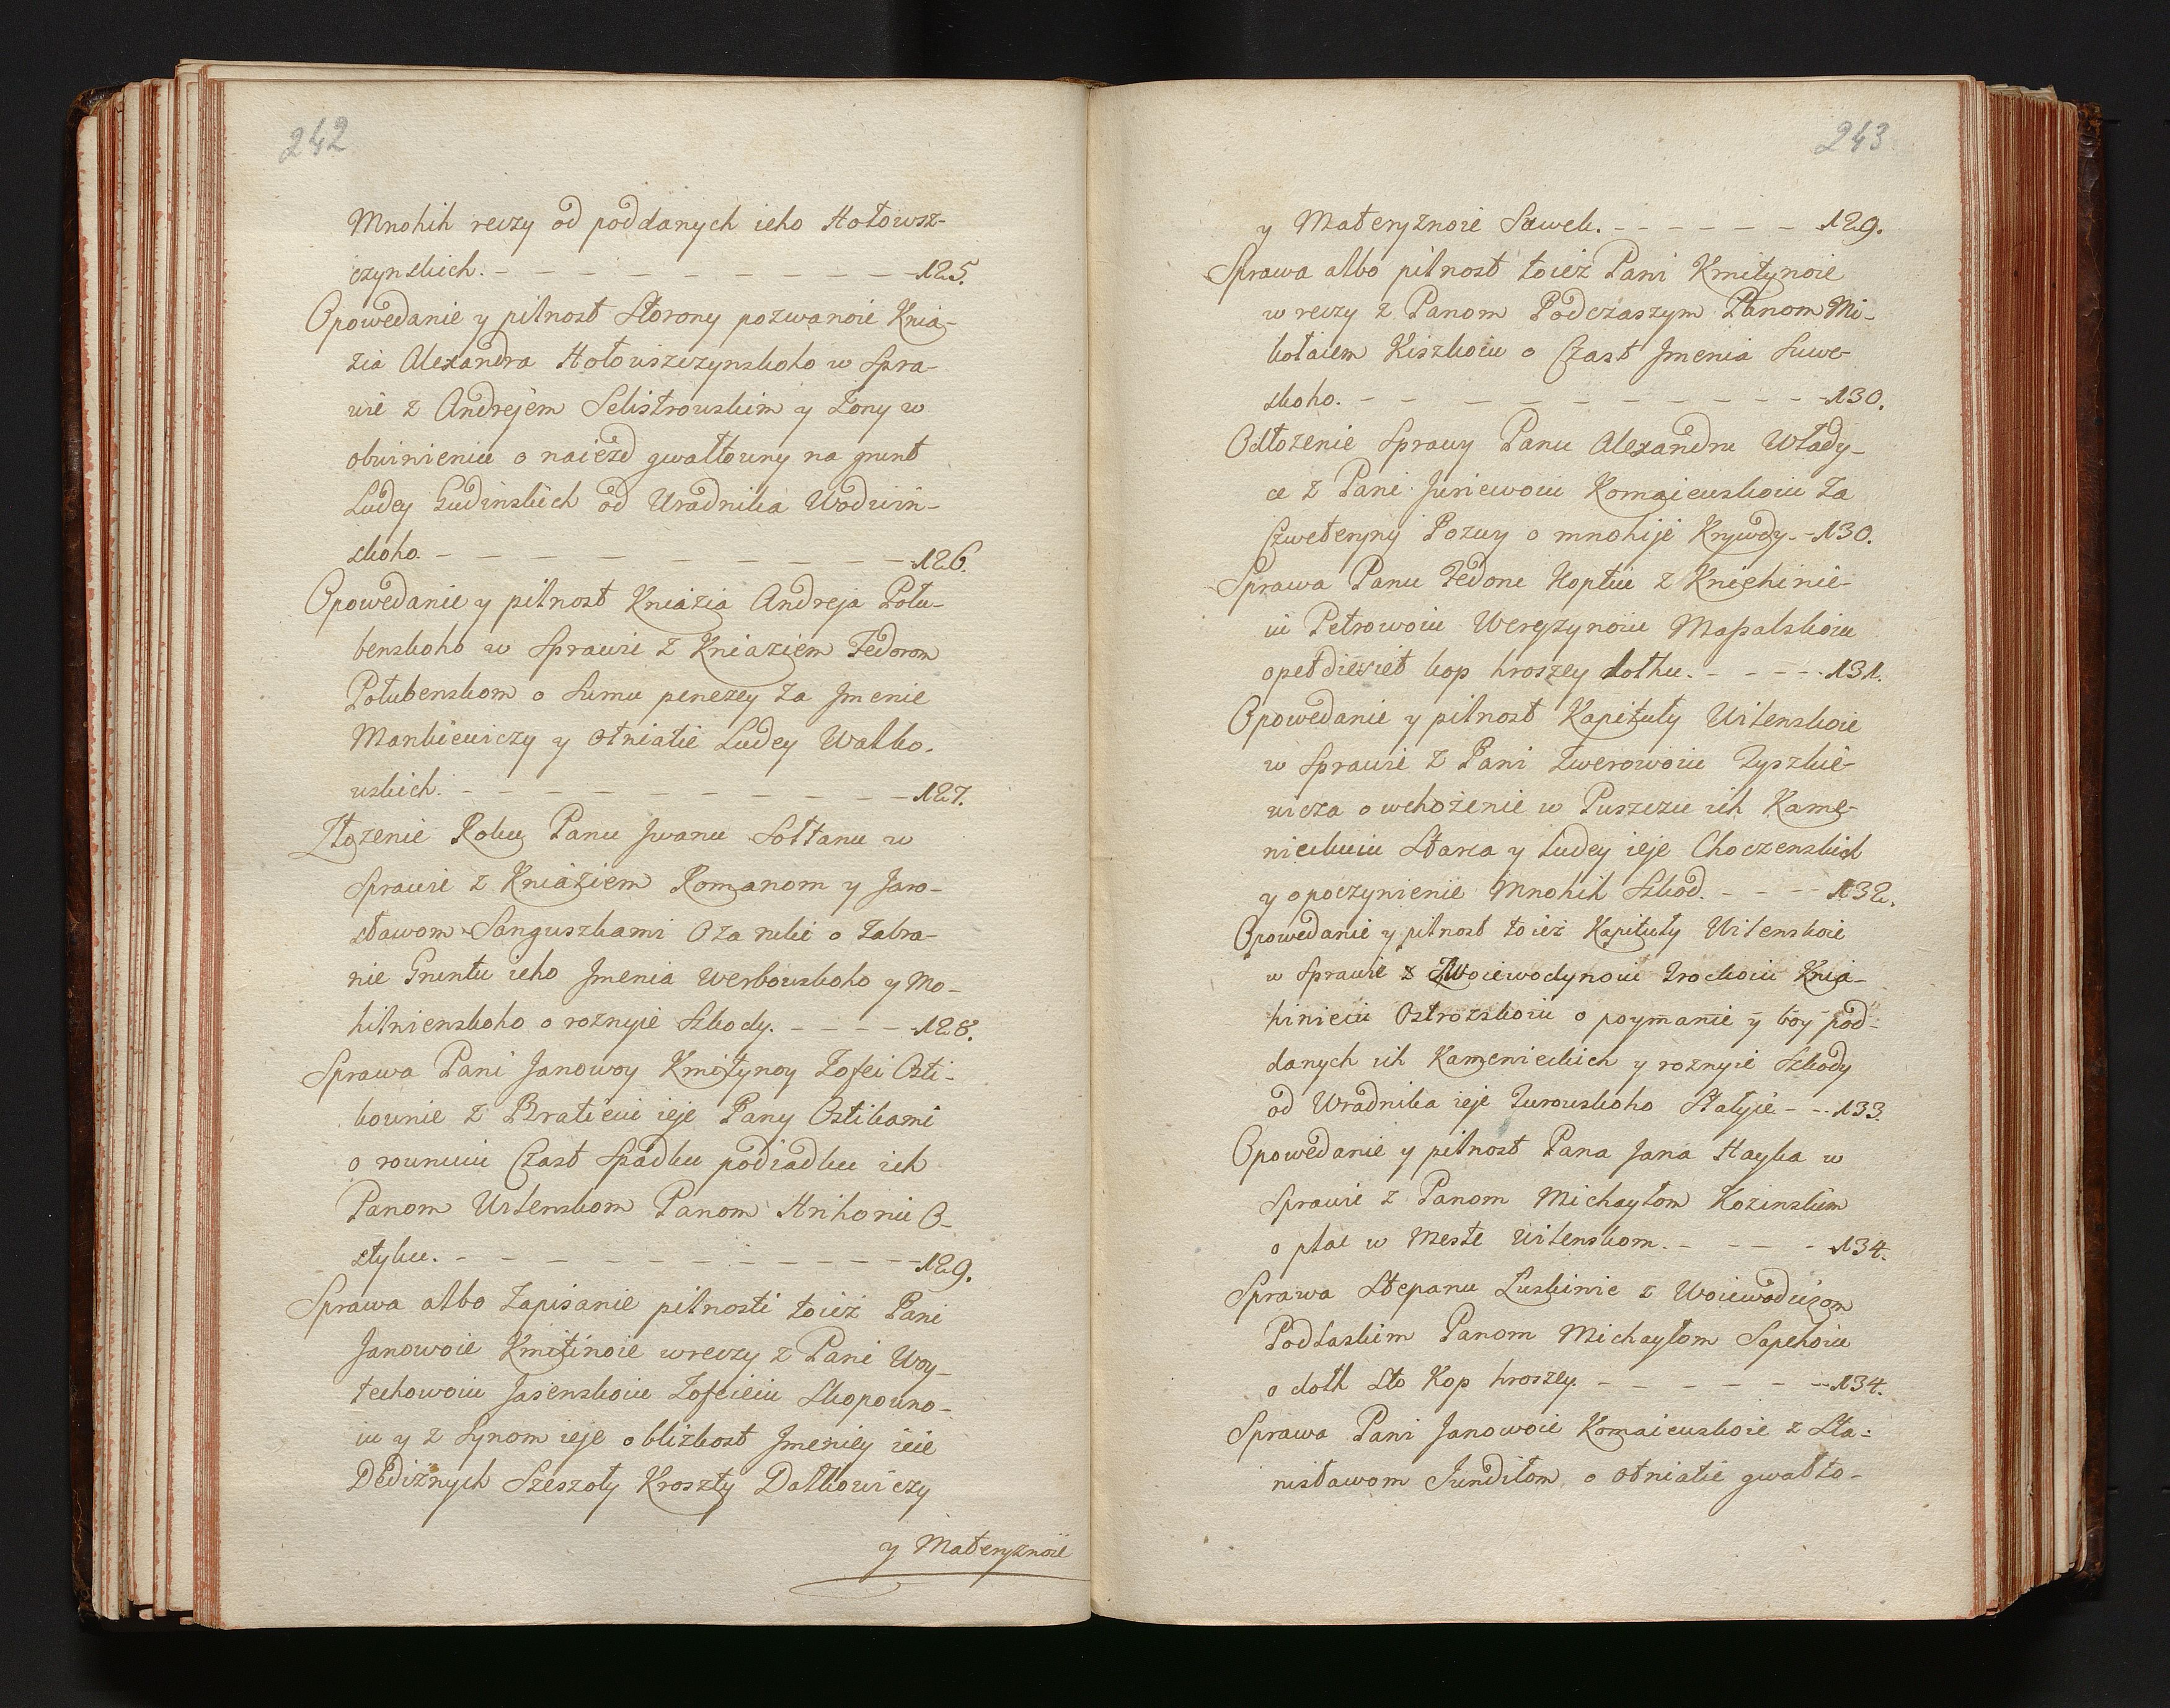 242
Mnohih reczy od poddanych ieho Hołowsz-
czynskich. - - - - - - - - - - 125.
Opowedanie y pilnost Storony pozwanoie Knia-
zia Alexandra Hołowszczynskoho w Spra-
wie z Andrejem Selistrowskim y Zony w
obwinieniu o naiezd gwałtowny na grunt
Ludey Gudinskich od Uradnika Wodwin-
skoho. - - - - - - - - - 126.
Opowedanie y pilnost Kniazia Andreja Połu-
benskoho w Sprawie z Kniaziem Fedorom
Połubenskom o Sumu penezey za Jmenie
Mankiewiczy y otniatie Ludey Walko-
wskich. - - - - - - - - - - 127.
Złozenie Roku Panu Jwanu Sołtanu w
Sprawie z Kniaziem Romanom y Jaro-
sławom Sanguszkami Oza ruki o zabra-
nie Gruntu ieho Jmenia Werbowskoho y Mo-
hilnienskoho o roznyie Szkody. - - - - 128.
Sprawa Pani Janowoy Kmitynoy Zofei Osti-
kownie z Bratieiu ieje Pany Ostikami
o rownuiu Czast Spadku podiadku ich
Panom Wilenskom Panom Hrihoriu O-
styku. - - - - - - - - - - - 129.
Sprawa albo Zapisanie pilnosti toież Pani
Janowoie Kmitinoie wreczy z Pani Woy-
techowoiu Jasenskoiu Zofeieiu Skopowno-
iu y z Synom ieje o blizkost Jmeniey ieie
Dediznych Szeszoły Kroszty Datkowiczy
y Materyznoie
243
y Materyznoie Suwek. - - - - - - 129.
Sprawa albo pilnost toież Pani Kmitynoie
w reczy z Panom Podczaszym Panom Mi-
kołaiem Kiszkoiu o Czast Jmenia Suwe-
skoho. - - - - - - - - - - - 130.
Odłozenie Sprawy Panu Alexandru Włady-
ce z Pani Juriewoiu Komaiewskoiu za
Czweteryny Pozwy o mnohije Krywdy. - 130.
Sprawa Panu Fedoru Koptiu z Kniehinie-
iu Petrowoiu Weryzynoiu Massalskoiu
o petdiesiet kop hroszey dothu. - - - - - 131.
Opowedanie y pilnost Kapituły Wilenskoie
w Sprawie z Pani Zwerowoiu Tyszkie-
wicza o wchożenie w Puszczu ich Kame-
nieckuiu Starca y Ludey ieje Choczenskich
y o poczynienie Mnohih Szkod. - - - - 132.
Opowedanie y pilnost toież Kapituły Wilenskoie
w Sprawie z Woiewodynoiu Trockoiu Knia-
hinieiu Ostrozskoiu o poymanie y boy pod-
danych ich Kamenieckich y roznyie Szkody
od Wradnika ieje Turowskoho Stałyie - - 133.
Opowedanie y pilnost Pana Jana Hayka w
Sprawie z Panom Michayłom Kozinskim
o płac w Meste Wilenskom. - - - - 134.
Sprawa Stepanu Luskinie z Woiewodiczom
Podlaskim Panom Michayłom Sapehoiu
o doth Sto Kop hroszey. - - - - - - 134.
Sprawa Pani Janowoie Komaiewskoie z Sta-
nisławom Jundiłom o otniatie gwałto-